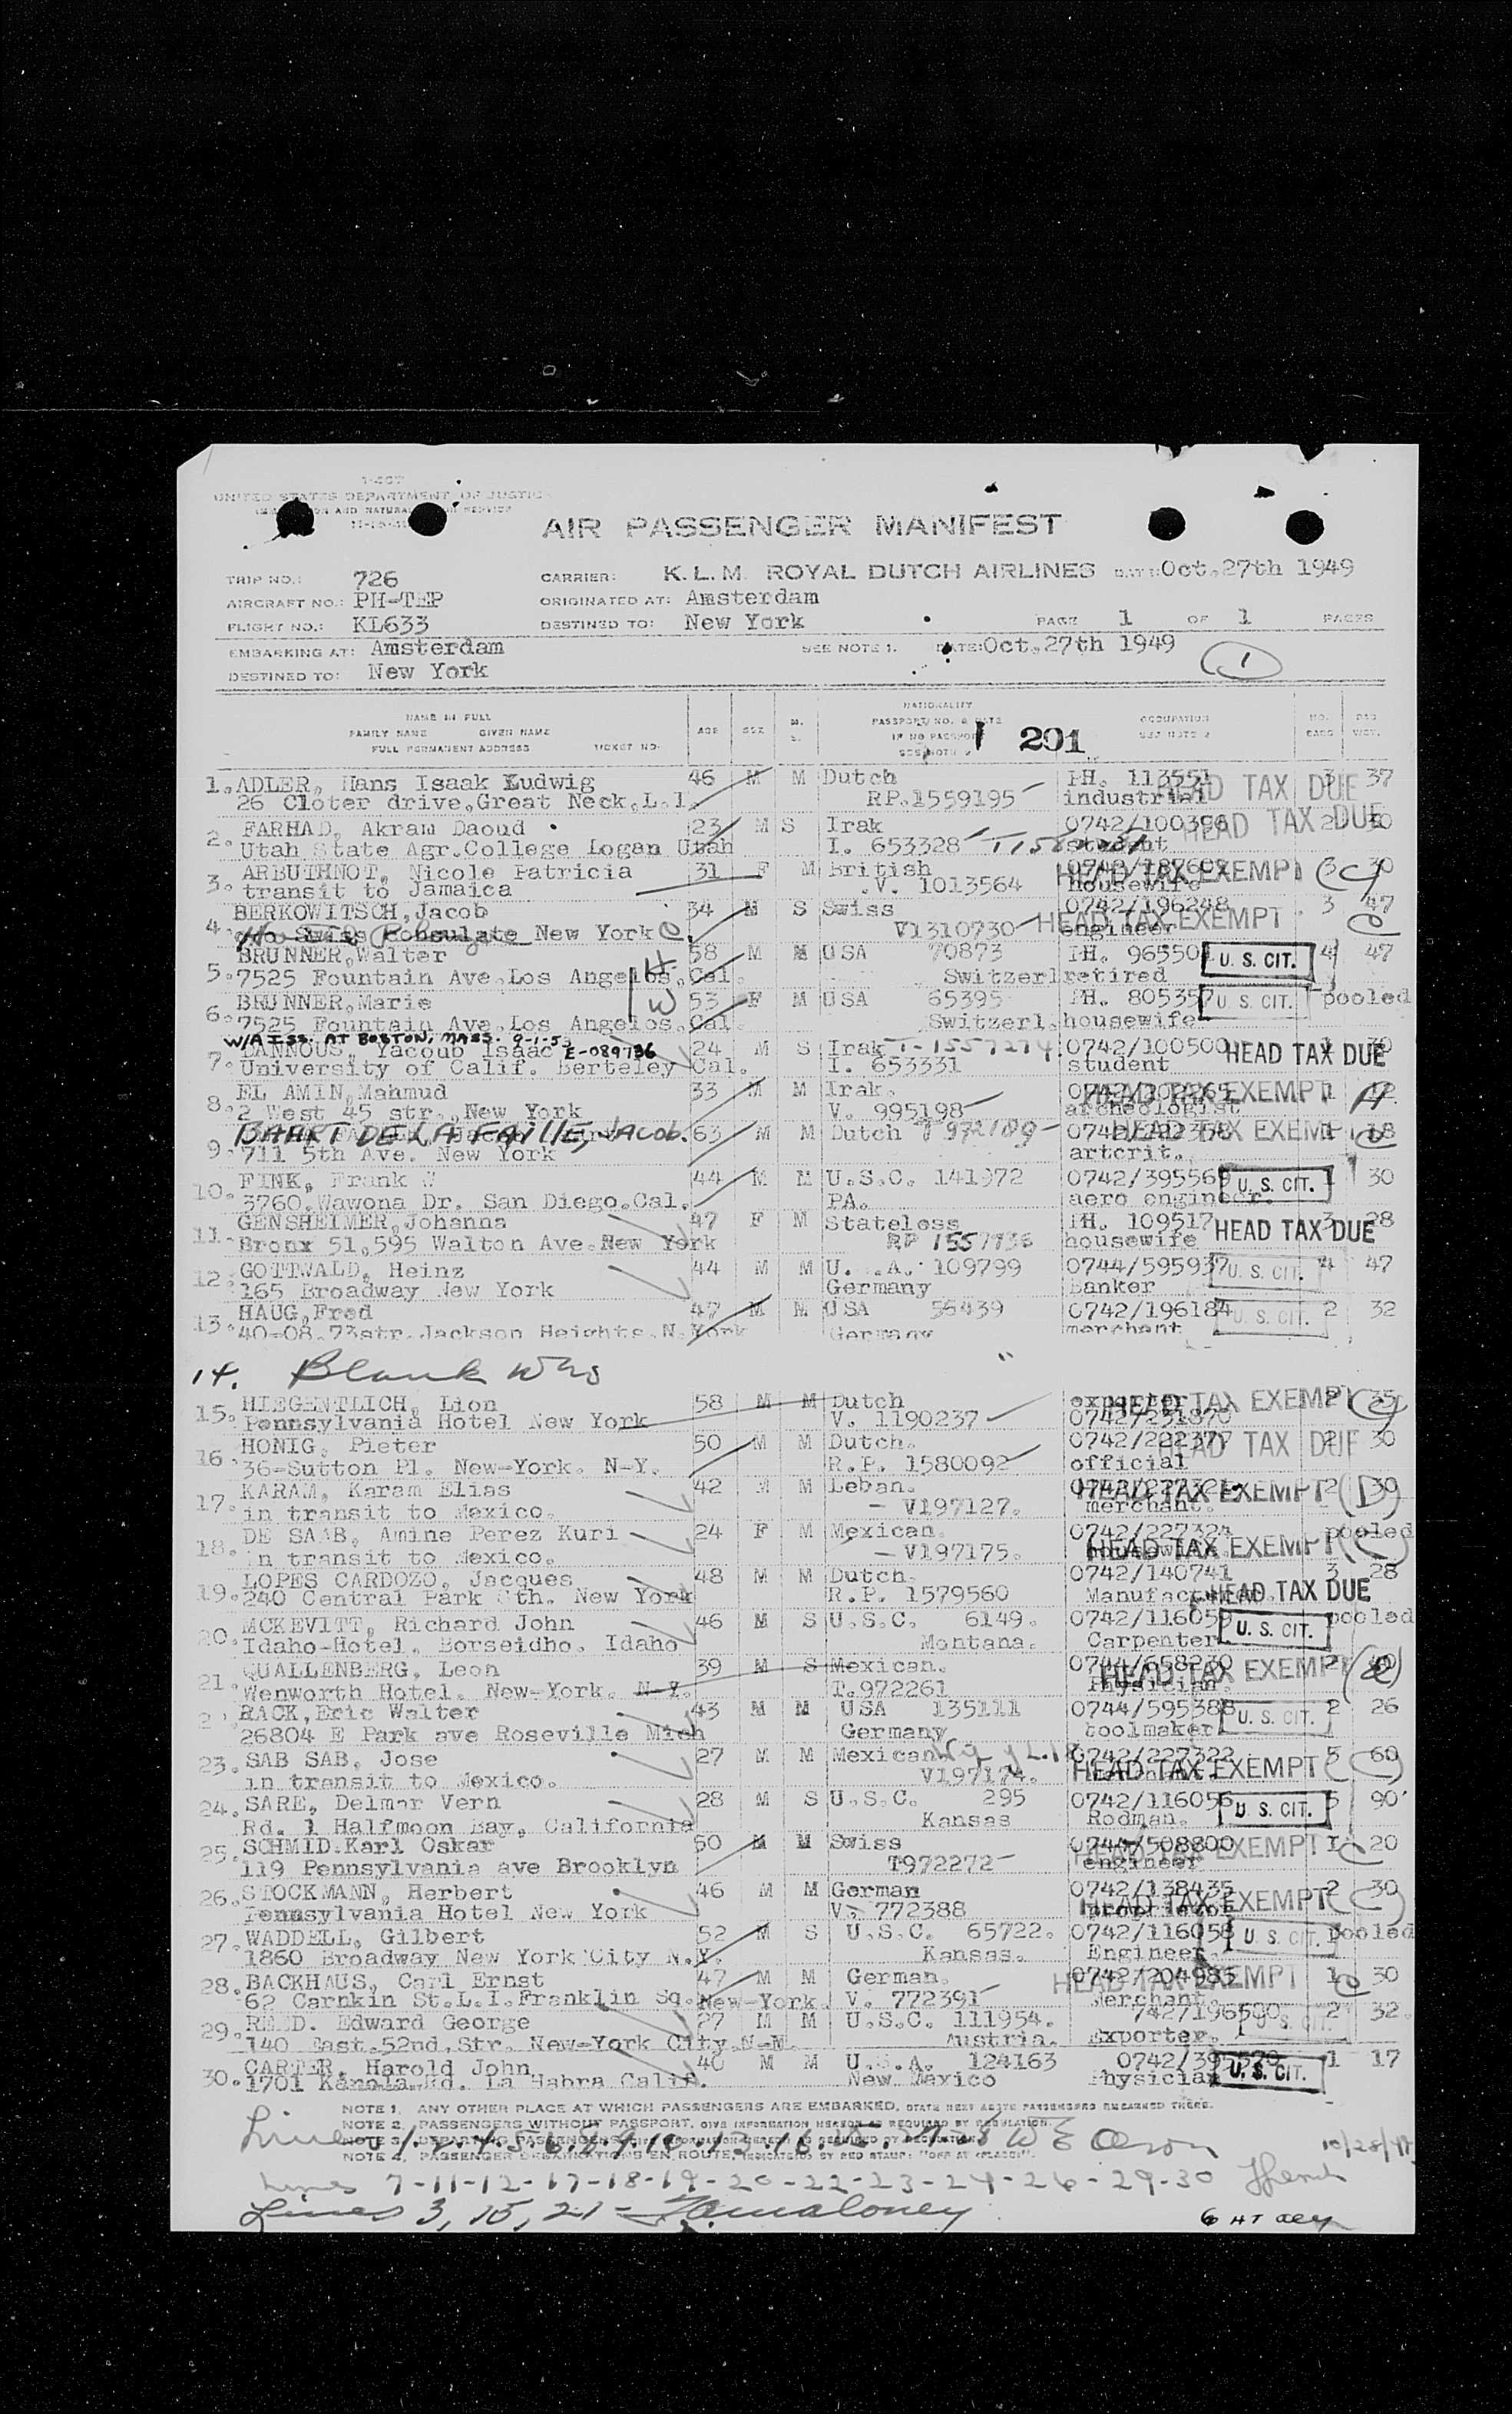 I-467
UNITED STATES DEPARTMENT OF JUSTICE
AIR PASSENGER MANIFEST
TRIP NO.: 726 CARRIER: K.L.M. ROYAL DUTCH AIRLINES DATE: Oct.27th 1949
AIRCRAFT NO.: PH-TEP ORIGINATED AT: Amsterdam
FLIGHT NO.: KL633 DESTINED TO: New York PAGE 1 OF 1 PAGES
EMBARKING AT: Amsterdam SEE NOTE 1. DATE: Oct.27th 1949
DESTINED TO: New York 1
NAME IN FULL
FAMILY NAME GIVEN NAME
FULL PERMANENT ADDRESS TICKET NO.
AGE SEX NATIONALITY
PASSPORT NO. & DATE
OCCUPATION
SEE NOTE 2
201
1. ADLER, Hans Isaak Ludwig 46 M M Dutch PH. 113551 3 37
26 Cloter drive, Great Neck, L.I. RP.1559195 industrial HEAD TAX DUE
2. FARHAD, Akram Daoud 23 M S Irak 0742/100396 2 30
Utah State Agr.College Logan Utah I. 653328 student HEAD TAX DUE
3. ARBUTHNOT, Nicole Patricia 31 F M British 3 30
transit to Jamaica V. 1013564 housewife HEAD TAX EXEMPT
4. BERKOWITSCH, Jacob 34 M S Swiss 0742/196248 3 47
c/o Swiss Consulate New York V1310730 engineer HEAD TAX EXEMPT
5. BRUNNER, Walter 58 M M USA 70873 PH. U. S. CIT. 4 47
7525 Fountain Ave, Los Angelos, Cal. Switzerl retired
6. BRUNNER, Marie 53 F M USA 65395 PH. 805357 U. S. CIT. pooled
7525 Fountain Ave, Los Angelos, Cal. Switzerl. housewife
W/A ISS. AT BOSTON, MASS. 9-1-53 E-089736
7. DANNOUS, Yacoub Isaac 24 M S Irak T-1557274 0742/100500 HEAD TAX DUE
University of Calif. Berteley Cal. I. 653331 student
8. EL AMIN, Mahmud 33 M M Irak. HEAD TAX EXEMPT 1 12
2 West 45 str., New York V. 995198 archeologist
9. BAART DE LA FAILLE, JACOB. 63 M M Dutch T 972189 HEAD TAX EXEMPT 1 18
711 5th Ave. New York artcrit.
10. FINK, Frank W 44 M M U.S.C. 141972 0742/395569 U. S. CIT. 1 30
3760 Wawona Dr. San Diego.Cal. PA. aero engineer.
11. GENSHEIMER, Johanna 47 F M Stateless PH. 109517 3 28
Bronx 51, 595 Walton Ave. New York RP 1557936 housewife HEAD TAX DUE
12. GOTTWALD, Heinz 44 M M U. .A. 109799 0744/595937 U. S. CIT. 4 47
165 Broadway New York Germany Banker
13. HAUG, Fred 47 M M USA 56439 0742/196184 U. S. CIT. 2 32
40-08.73str. Jackson Heights. N.York Germany merchant
14. Blank
15. HIEGENTLICH, Lion 58 M M Dutch exporter HEAD TAX EXEMPT 2 35
Pennsylvania Hotel New York V. 1190237 0742/231870
16. HONIG, Pieter 50 M M Dutch. 0742/222377 HEAD TAX DUE 2 30
36-Sutton Pl. New-York. N-Y. R.P. 1580092 official
17. KARAM, Karam Elias 42 M M Leban. HEAD TAX EXEMPT 2 30
in transit to Mexico. V197127. merchant.
18. DE SAAB, Amine Perez Kuri 24 F M Mexican. 0742/227324 pooled
in transit to Mexico. V197175. HEAD TAX EXEMPT
19. LOPES CARDOZO, Jacques 48 M M Dutch. 0742/140741 3 28
240 Central Park Sth. New York R.P. 1579560 HEAD TAX DUE
20. MCKEVITT, Richard John 46 M S U.S.C. 6149. 0742/116059 U. S. CIT. pooled
Idaho-Hotel. Borseidho. Idaho Montana. Carpenter
21. QUALLENBERG, Leon 39 M S Mexican. 0744/658230
Wenworth Hotel. New-York. N-Y. T.972261 Physician. HEAD TAX EXEMPT
2 RACK, Eric Walter 43 M M USA 135111 0744/595388 U. S. CIT. 2 26
26804 E Park ave Roseville Mich Germany toolmaker
23. SAB SAB, Jose 27 M M Mexican 0742/227322 5 60
in transit to Mexico. V197174. HEAD TAX EXEMPT
24. SARE, Delmar Vern 28 M S U.S.C. 295 0742/116056 U. S. CIT. 5 90
Rd. 1 Halfmoon Bay, California Kansas Rodman.
25. SCHMID. Karl Oskar 50 M M Swiss 0744/508800 1 20
119 Pennsylvania ave Brooklyn T972272 engineer HEAD TAX EXEMPT
26. STOCKMANN, Herbert 46 M M German 0742/138435 2 30
Pennsylvania Hotel New York V. 772388 HEAD TAX EXEMPT
27. WADDELL, Gilbert 52 M S U.S.C. 65722. 0742/116058 U. S. CIT. pooled
1860 Broadway New York City N.Y. Kansas. Engineer.
28. BACKHAUS, Carl Ernst 47 M M German. 0742/204985 HEAD TAX EXEMPT 1 30
62 Carnkin St.L.I.Franklin Sq. New-York. V. 772391 Merchant
29. REED. Edward George 27 M M U.S.C. 111954. 742/196500 U. S. CIT. 2 32.
140 East.52nd.Str. New-York City.N-M. Austria. Exporter.
30. CARTER, Harold John 40 M M U.S.A. 124163 U. S. CIT. 1 17
1701 Kanola Rd. La Habra Calif. New Mexico Physician
NOTE 1. ANY OTHER PLACE AT WHICH PASSENGERS ARE EMBARKED, STATE NEXT ABOVE PASSENGERS EMBARKED THERE.
NOTE 2. PASSENGERS WITHOUT PASSPORT, GIVE INFORMATION HEREON AS REQUIRED BY REGULATION.
NOTE 3. DEPARTING PASSENGERS
NOTE 4. PASSENGER EXAMINATIONS EN ROUTE, INDICATED BY RED STAMP: "OFF AT (PLACE)".
Lines 1-2-4-5-6-8-9-10-13-16-25-27-28 W E Olson 10/28/49
Lines 7-11-12-17-18-19-20-22-23-24-26-29-30
Lines 3, 15, 21 - Maloney 6 HT